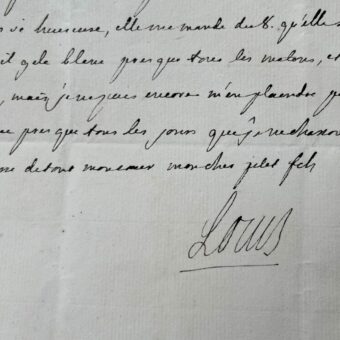 si heureuse, elle me mande du 8. qu'elle
gelé blanc presque tous les matins, et
, mais je ne puis encore m'en plaindre
presque tous les jours que je ne chasse
de tout mon cœur mon cher petit fils
Louis